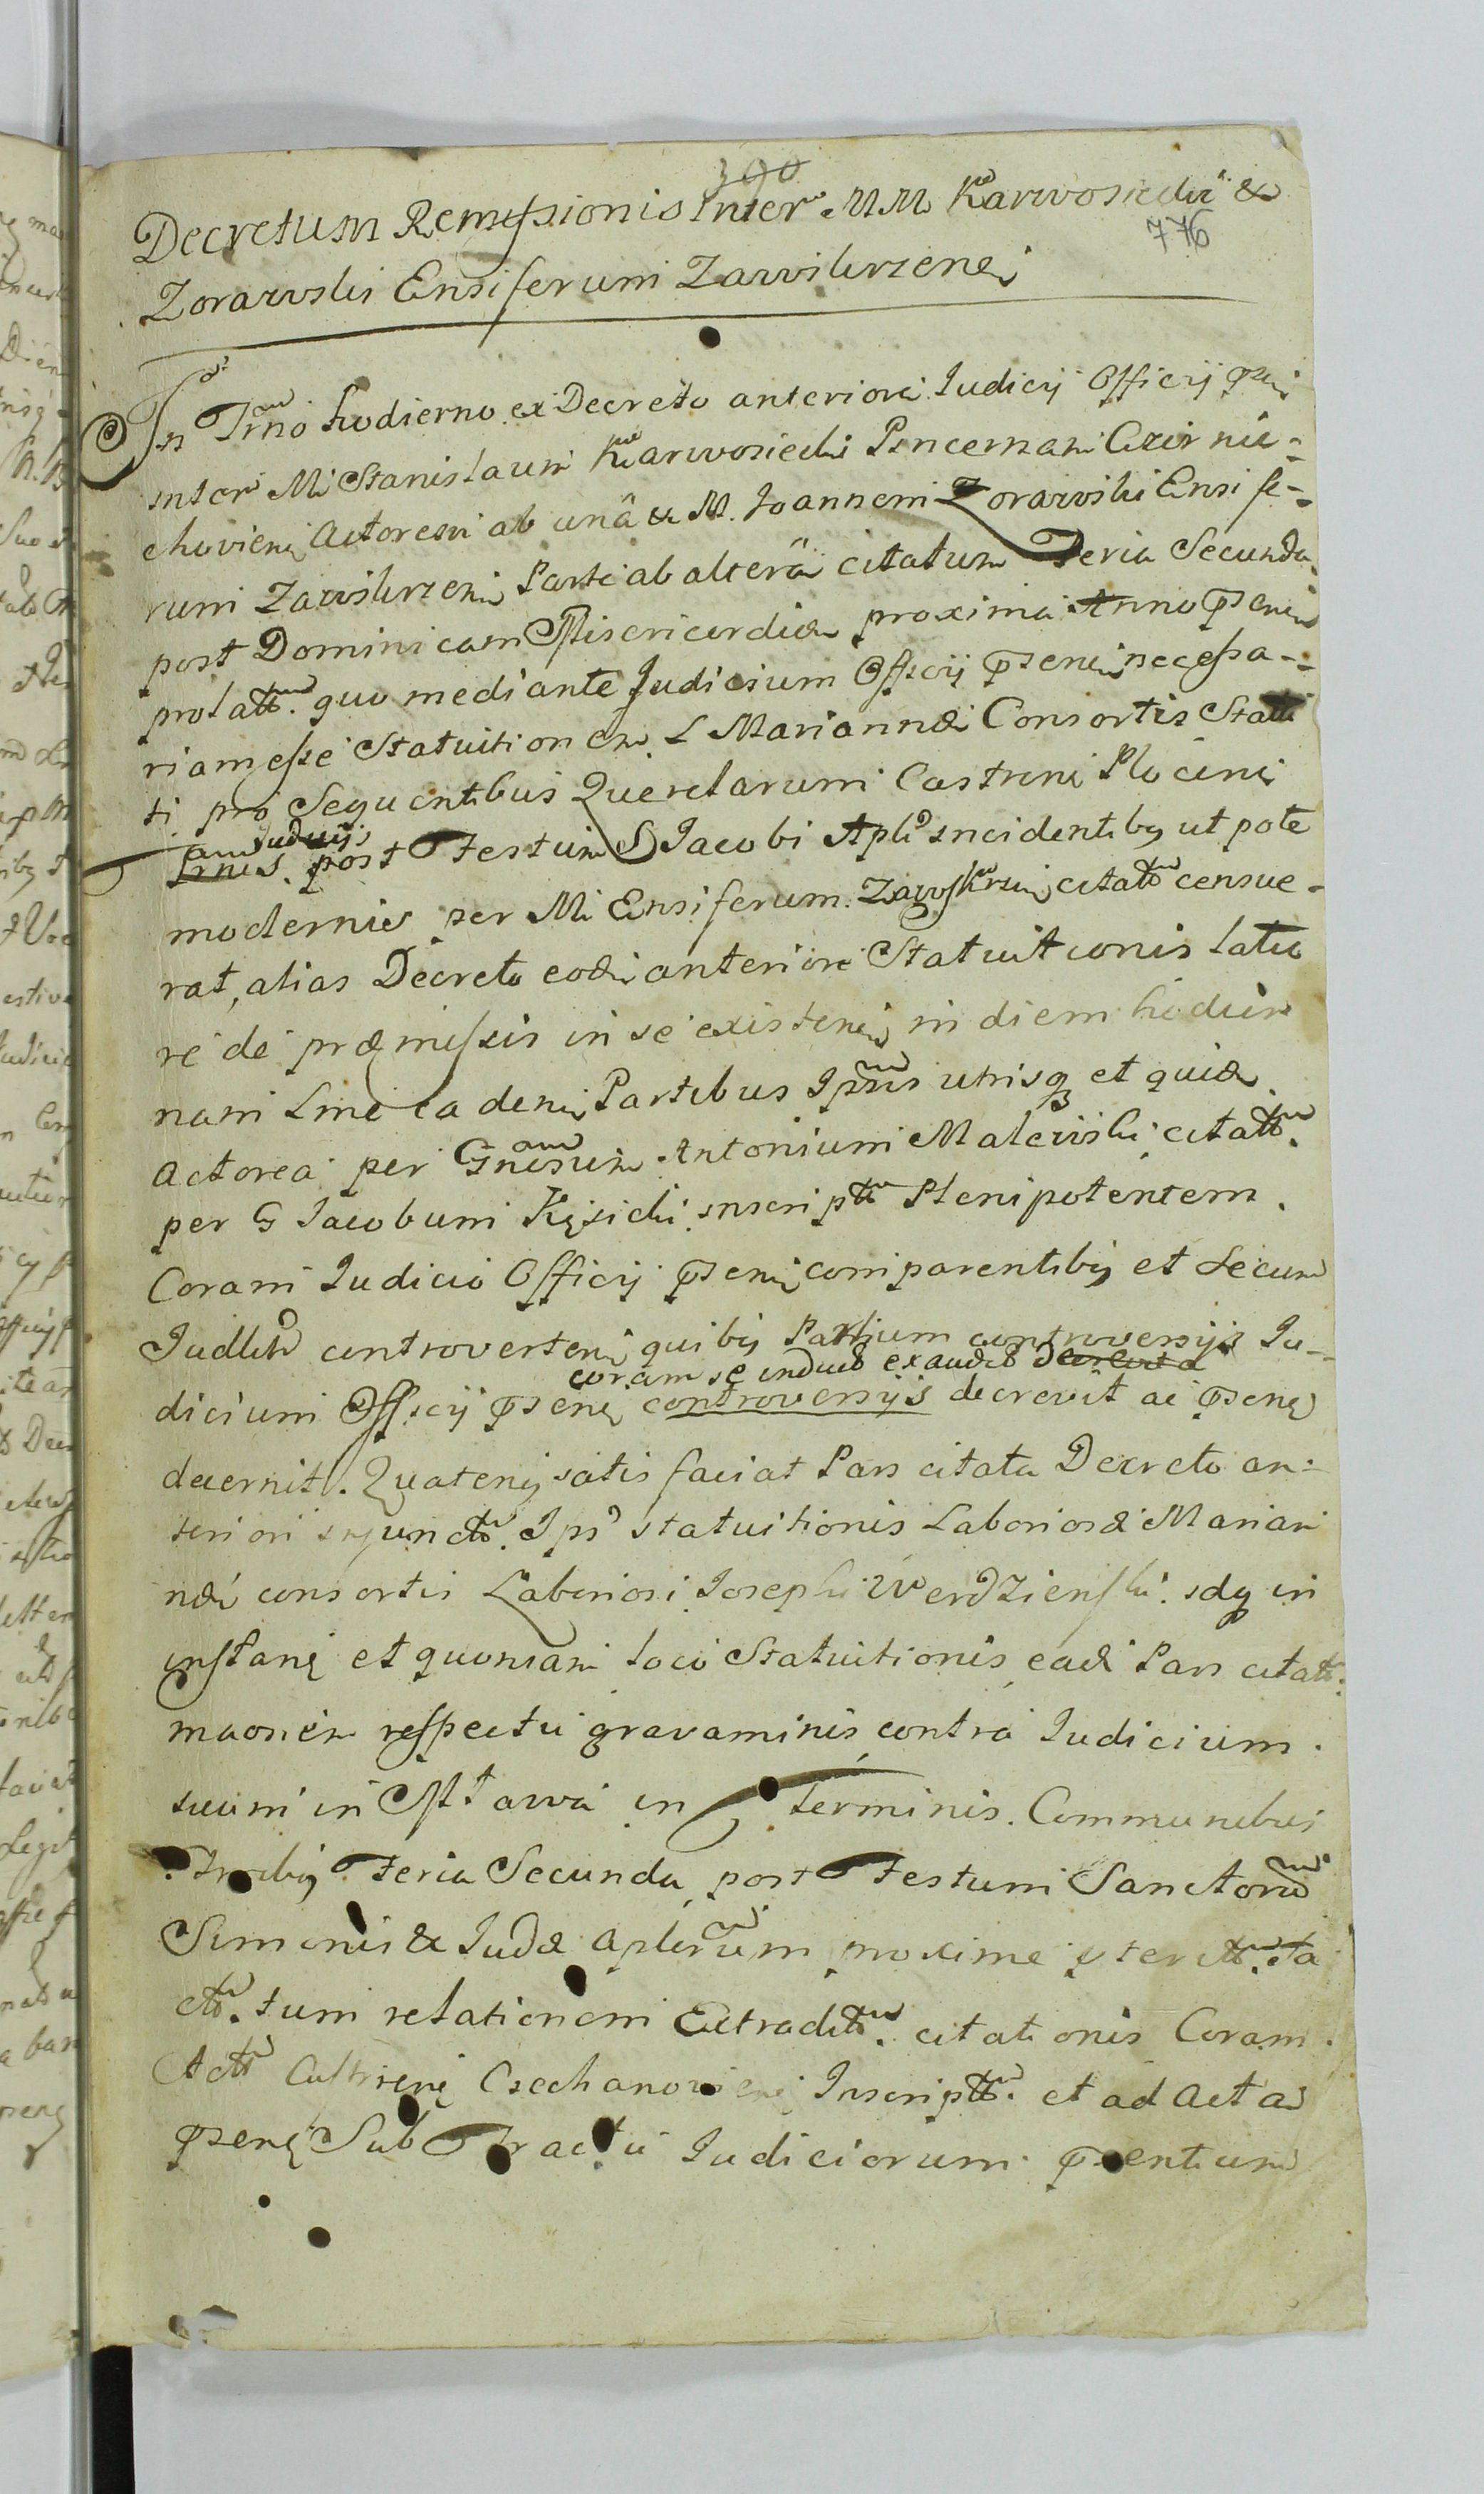 390
Decretum Remissionis Inter MM Karwosiecki &
776
Zorawski Ensiferum Zawskrzenẽ
In Trno hodierno ex Decreto anteriori Iudicij Officij pñi
inter M Stanislaum Karwosiecki Pincernam Czer nie-
choviens Actorem ab unâ & M. Joannem Zorawski Ensi fe-
rum Zawskrzen Parte ab alterâ citatum Feria Secunda
post Dominicam Misericordiæ proxima Anno psen
prolatt. quo mediante Judicium Officij psen necessa-
riam esse Statuitionem L Mariannæ Consortis Statt
ti pro Sequentibus Querelarum Castren Plocen
Iudicijs
Trnis. post Festum S Jacobi Apli incidentibg ut pote
modernis per M Ensiferum Zawskrzen citatt censue-
rat, alias Decreto eodem anteriore Statuitionis lato
re de præmissis in se existen in diem hodier
nam Lme caden Partibus Ipsis utrisq et quidem
Actorea per Gnosum Antonium Malewski, citatt.
per G Jacobum Kęsicki inscriptt Plenipotentem.
Coram Judicio Officij psen comparentibg et Secum
Iudltr controverten quibg Partium controversijs Iu-
coram se induct exaudit decrevit a
dicium Officij psen controversijs decrevit ac psen
decernit. Quateng satis faciat Pars citata Decreto an-
teriori injunctt. Ips statuitionis Laboriosæ Marian
næ consortis Laboriosi Josephi Werdzienski. idq in
instan et quoniam loco Statuitionis eadem Pars citatt.
maonem respectu gravaminis contra Iudicium.
suum in Mława in Terminis. Communibus
Trnibg Feria Secunda post Festum Sanctorum
Simonis & Iudæ Aplorum proxime
ctt. tum relationem Extraditt. citationis Coram.
Actt Castren Czechanovien Inscriptt. et ad Acta
psen Sub Tractu Iudiciorum psentium